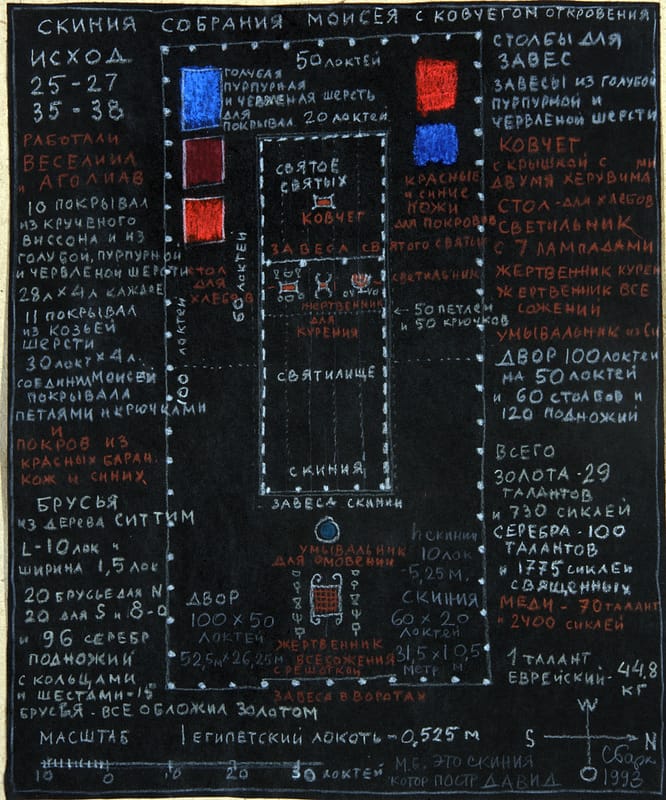 СКИНИЯ СОБРАНИЯ МОИСЕЯ С КОВЧЕГОМ ОТКРОВЕНИЯ
ИСХОД
25-27
35-38
РАБОТАЛИ
ВЕСЕЛИИЛ
и АГОЛИАВ
10 ПОКРЫВАЛ
ИЗ КРУЧЕНОГО
ВИССОНА И ИЗ
ГОЛУБОЙ, ПУРПУРНОЙ
И ЧЕРВЛЕНОЙ ШЕРСТИ
28Л × 4Л КАЖДОЕ
11 ПОКРЫВАЛ
ИЗ КОЗЬЕЙ
ШЕРСТИ
30 ЛОКТ × 4 Л.
СОЕДИНИЛ МОИСЕЙ
ПОКРЫВАЛА
ПЕТЛЯМИ И КРЮЧКАМИ
И
ПОКРОВ ИЗ
КРАСНЫХ БАРАН.
КОЖ И СИНИХ
БРУСЬЯ
ИЗ ДЕРЕВА СИТТИМ
L-10 ЛОК и
ШИРИНА 1,5 ЛОК
20 БРУСЬЕ ДЛЯ N
20 ДЛЯ S И 8-О
и 96 СЕРЕБР
ПОДНОЖИЙ
С КОЛЬЦАМИ
И ШЕСТАМИ-15
БРУСЬЯ - ВСЕ ОБЛОЖИЛ ЗОЛОТОМ
50 ЛОКТЕЙ
ГОЛУБАЯ
ПУРПУРНАЯ
И ЧЕРВЛЕНАЯ ШЕРСТЬ
ДЛЯ
ПОКРЫВАЛ
20 ЛОКТЕЙ
СВЯТОЕ
СВЯТЫХ
КОВЧЕГ
КРАСНЫЕ
и СИНИЕ
КОЖИ
ДЛЯ ПОКРОВОВ
ЗАВЕСА СВЯТОГО СВЯТЫХ
СТОЛ
ДЛЯ
ХЛЕБОВ
60 ЛОКТЕЙ
100 ЛОКТЕЙ
СВЕТИЛЬНИК
ЖЕРТВЕННИК
ДЛЯ
КУРЕНИЯ
← 50 ПЕТЛЕЙ
И 50 КРЮЧКОВ
СВЯТИЛИЩЕ
СКИНИЯ
ЗАВЕСА СКИНИИ
УМЫВАЛЬНИК
ДЛЯ ОМОВЕНИЙ
h СКИНИИ
10 ЛОК
-5,25 М.
ДВОР
100 × 50
ЛОКТЕЙ
52,5м × 26,25м
СКИНИЯ
60 × 20
ЛОКТЕЙ
31,5 × 10,5
МЕТР
ЖЕРТВЕННИК
ВСЕСОЖЖЕНИЯ
С РЕШОТКОЙ
ЗАВЕСА В ВОРОТАХ
СТОЛБЫ ДЛЯ
ЗАВЕС
ЗАВЕСЫ ИЗ ГОЛУБОЙ
ПУРПУРНОЙ И
ЧЕРВЛЕНОЙ ШЕРСТИ
КОВЧЕГ
С КРЫШКОЙ С
ДВУМЯ ХЕРУВИМА
СТОЛ - ДЛЯ ХЛЕБОВ
СВЕТИЛЬНИК
С 7 ЛАМПАДАМИ
ЖЕРТВЕННИК КУРЕН
ЖЕРТВЕННИК ВСЕ
СОЖЕНИЙ
УМЫВАЛЬНИК
ДВОР 100 ЛОКТЕЙ
НА 50 ЛОКТЕЙ
И 60 СТОЛБОВ И
120 ПОДНОЖИЙ
ВСЕГО
ЗОЛОТА - 29
ТАЛАНТОВ
и 730 СИКЛЕЙ
СЕРЕБРА - 100
ТАЛАНТОВ
и 1775 СИКЛЕЙ
СВЯЩЕННЫХ
МЕДИ - 70 ТАЛАНТ
и 2400 СИКЛЕЙ
1 ТАЛАНТ
ЕВРЕЙСКИЙ - 44,8
КГ
МАСШТАБ
1 ЕГИПЕТСКИЙ ЛОКОТЬ - 0,525 М
10 0 10 20 30 ЛОКТЕЙ
М.Б. ЭТО СКИНИЯ
КОТОР ПОСТР ДАВИД
W
S N
O
1993